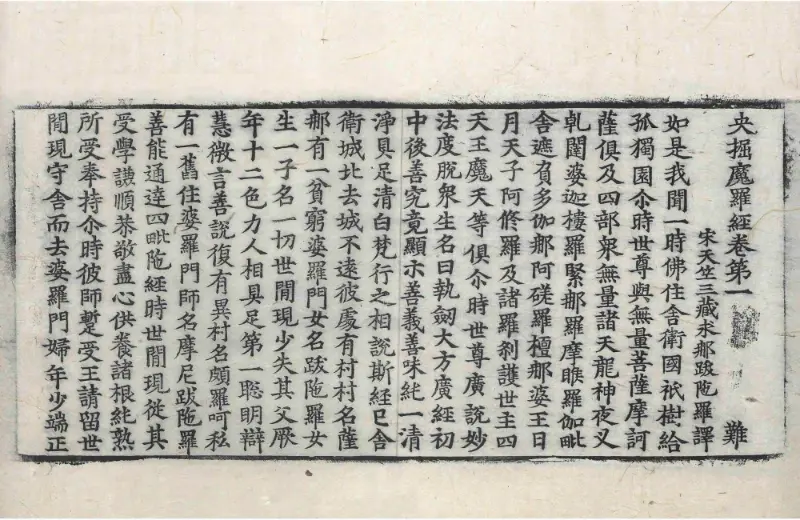 央掘魔羅經卷第一 難
宋天竺三藏求郍跋陁羅譯
如是我聞一時佛住舍衛國祇樹給
孤獨園尒時世尊與無量菩薩摩訶
薩俱及四部衆無量諸天龍神夜叉
乹闥婆迦樓羅緊郍羅摩睺羅伽毗
舍遮負多伽郍阿磋羅檀郍婆王日
月天子阿修羅及諸羅刹護世主四
天王魔天等俱尒時世尊廣說妙
法度脫衆生名曰執劒大方廣經初
中後善究竟顯示善義善味純一清
淨具足清白梵行之相說斯經已舍
衛城北去城不遠彼處有村村名薩
郍有一貧窮婆羅門女名跋陁羅女
生一子名一切世間現少失其父厥
年十二色力人相具足第一聡明辯
慧微言善說復有異村名頗羅呵私
有一舊住婆羅門師名摩尼跋陁羅
善能通達四毗陁經時世間現從其
受學謙順恭敬盡心供養諸根純熟
所受奉持尒時彼師蹔受王請留世
間現守舍而去婆羅門婦年少端正